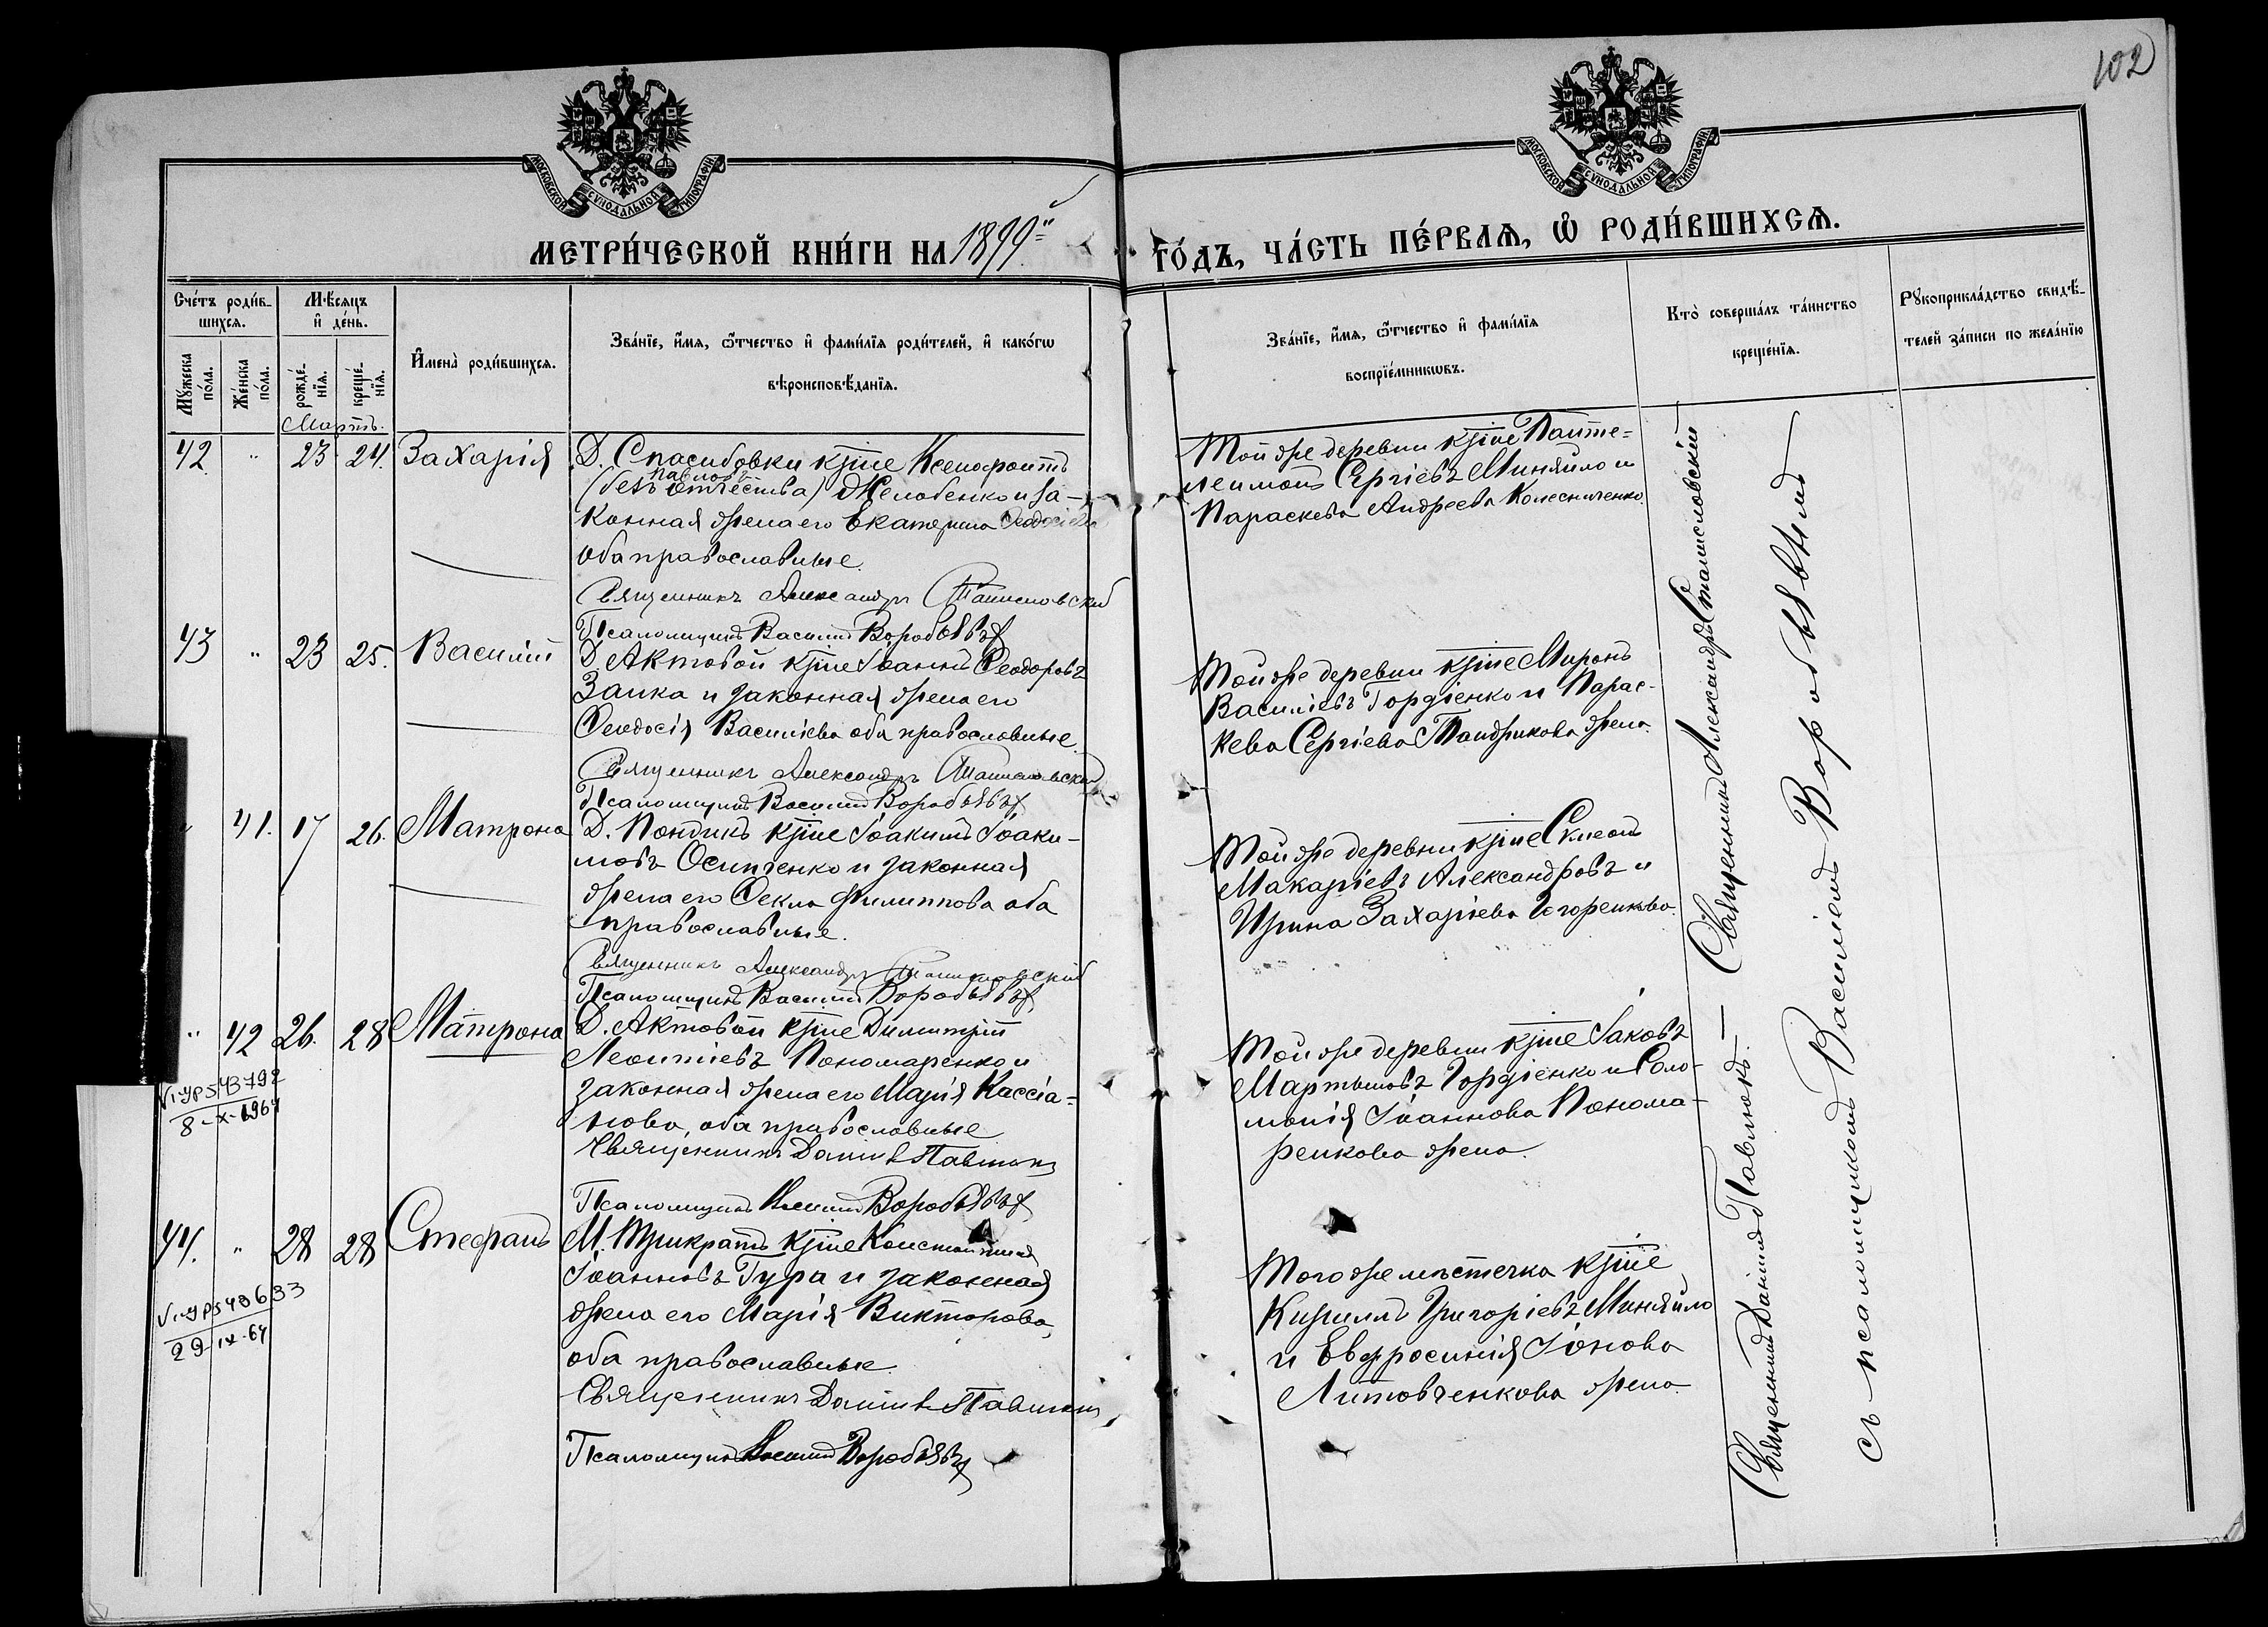 102
МОСКОВСКОЙ СѴНОДАЛЬНОЙ ТИПОГРАФІИ
МОСКОВСКОЙ СѴНОДАЛЬНОЙ ТИПОГРАФІИ
МЕТРИ́ЧЕСКОЙ КНИ́ГИ НА 1899й
ГО́ДЪ, ЧА́СТЬ ПЕ́РВАѦ, Ѡ РОДИ́ВШИХСѦ.
Сче́тъ роди́в-
шихсѧ.
Мꙋ́жеска по́ла.
Же́нска по́ла.
Мѣ́сѧцъ
и҆ де́нь.
рожде́-
нїѧ.
креще́-
нїѧ.
И҆мена̀ роди́вшихсѧ.
Зва́нїе, и҆́мѧ, ѻ҆́тчество и҆ фами́лїѧ роди́телей, и҆ како́гѡ
вѣроисповѣ́данїѧ.
Зва́нїе, и҆́мѧ, ѻ҆́тчество и҆ фами́лїѧ
воспрїе́мникѡвъ.
Кто̀ соверша́лъ та́инство
креще́нїѧ.
Рꙋкоприкла́дство свидѣ́-
телей за́писи по жела́нїю
Мартъ.
42. " 23 24. Захарія
Д. Спасибовки кр̃не Ксенофонтъ
Павловъ
(безъ отчества) Желобенко и за-
конная жена его Екатерина Ѳеодосіева
оба православные.
Священникъ Александръ Станиславскій
Псаломщикъ Василій Воробьевъ
Той же деревни кр̃не Панте-
леимонъ Сергіевъ Миняйло и
Параскева Андреева Колесниченко.
43 " 23 25. Василій
Д. Актовой кр̃не Іоаннъ Ѳеодоровъ
Заика и законная жена его
Ѳеодосія Василіева оба православные.
Священникъ Александръ Станиславскій
Псаломщикъ Василій Воробьевъ
Той же деревни кр̃не Миронъ
Василіевъ Гордіенко и Парас-
кева Сергіева жена.
" 41. 17 26. Матрона
Д. Пондикъ кр̃не Іоакимъ Іоаки-
мовъ Осипченко и законная
жена его Ѳекла Филиппова оба
православные.
Священникъ Александръ Станиславскій
Псаломщикъ Василій Воробьевъ
Той же деревни кр̃не Симеонъ
Макаріевъ Александровъ и
Ирина Захаріева
" 42 26. 28 Матрона
Д. Актовой кр̃не Димитрій
Леонтіевъ Пономаренко и
законная жена его Марія Кассіа-
нова, оба православные
Священникъ Даніилъ Павлюкъ
Псаломщикъ Василій Воробьевъ
Той же деревни кр̃не Іаковъ
Мартыновъ Гордіенко и Соло-
монія Іоаннова Понома-
ренкова жена.
V-УР543792
8-X-1964
44. " 28 28 Стефанъ
М. Трикратъ кр̃не Константинъ
Іоанновъ Гура и законная
жена его Марія Викторова,
оба православные.
Священникъ Даніилъ Павлюкъ
Псаломщикъ Василій Воробьевъ
Того же мѣстечка кр̃не
Кириллъ Григоріевъ Миняйло
и Евфросинія Іонова
Литовченкова жена.
V-УР543633
29-IX-64
Священникъ Даніилъ Павлюкъ. — Священникъ Александръ Станиславскій
съ псаломщикомъ Василіемъ Воробьевымъ